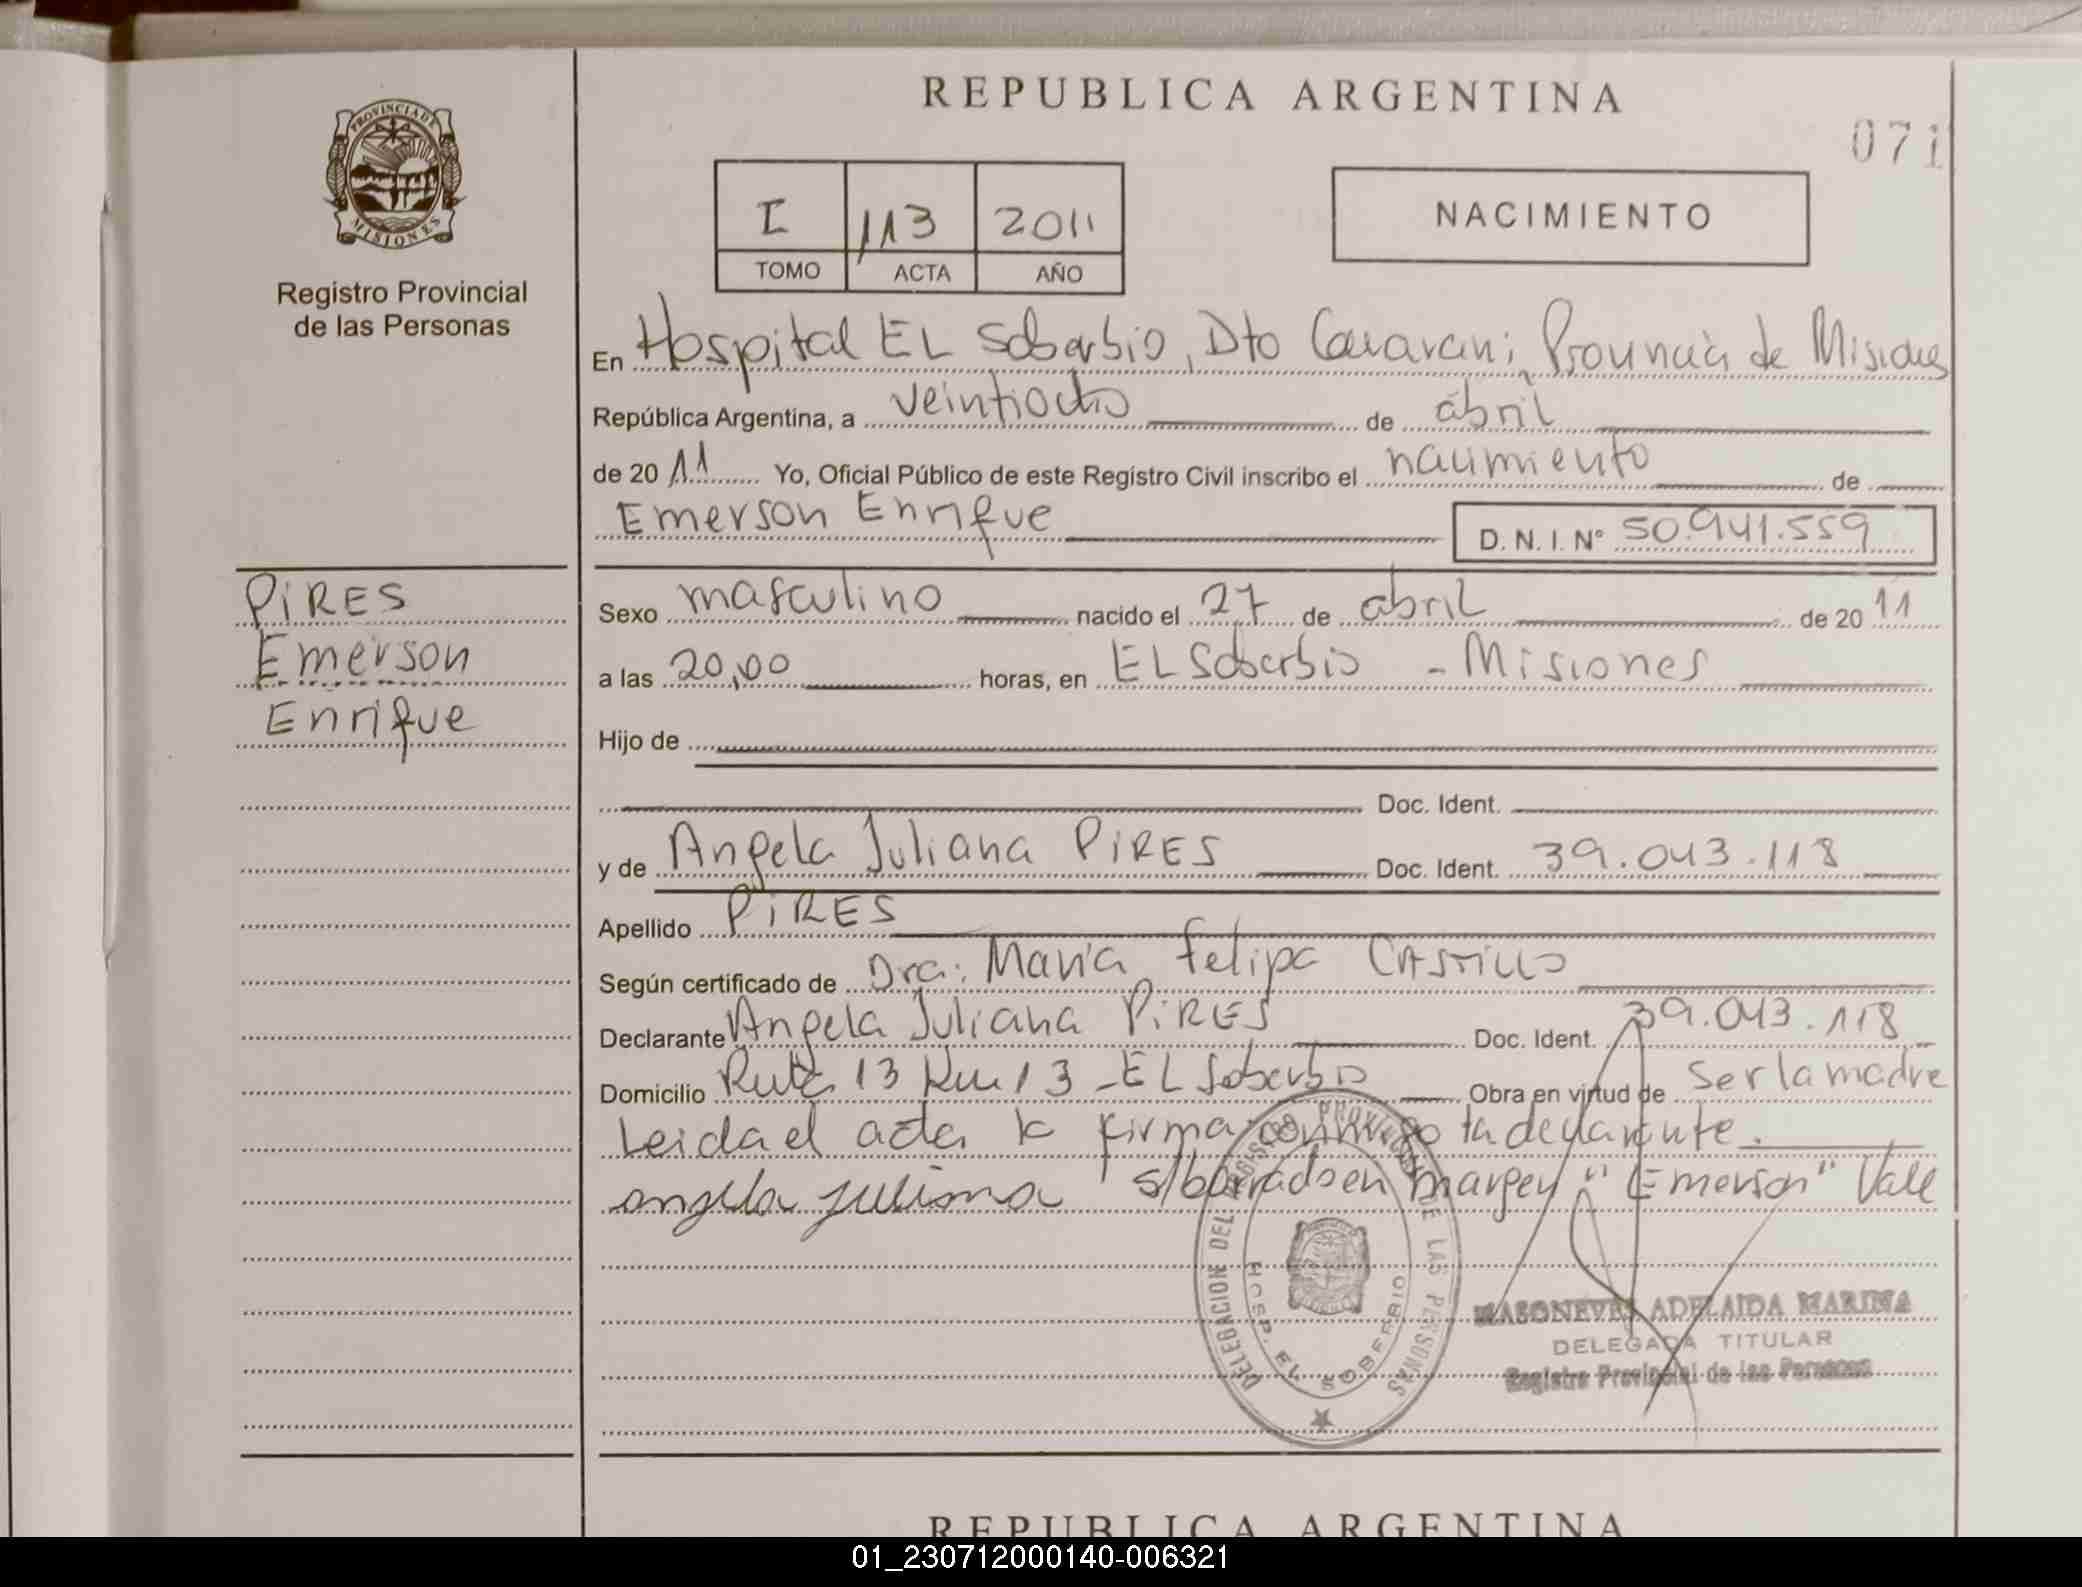 PROVINCIA DE
MISIONES
Registro Provincial
de las Personas
REPUBLICA ARGENTINA
071
I 113 2011
TOMO ACTA AÑO
NACIMIENTO
En Hospital EL Soberbio, Dto Guaraní, Provincia de Misiones
República Argentina, a veintiocho de abril
de 20 11 Yo, Oficial Público de este Registro Civil inscribo el nacimiento de
Emerson Enrique D. N. I. Nº 50.941.559
PIRES
Emerson
Enrique
Sexo masculino nacido el 27 de abril de 20 11
a las 20,00 horas, en EL Soberbio - Misiones
Hijo de
Doc. Ident.
y de Angela Juliana PIRES Doc. Ident. 39.043.118
Apellido PIRES
Según certificado de Dra: María Felipa CASTILLO
Declarante Angela Juliana PIRES Doc. Ident. 39.043.118
Domicilio Ruta 13 Km 13 - EL Soberbio Obra en virtud de Ser la madre
Leida el acta la firma conmigo la declarante.
angela juliana s/borrado en margen "Emerson" Vale
DELEGACION DEL REGISTRO PROVINCIAL DE LAS PERSONAS
HOSP. EL SOBERBIO
ADELAIDA MARINA
DELEGADA TITULAR
Registro Provincial de las Personas
REPUBLICA ARGENTINA
01_230712000140-006321